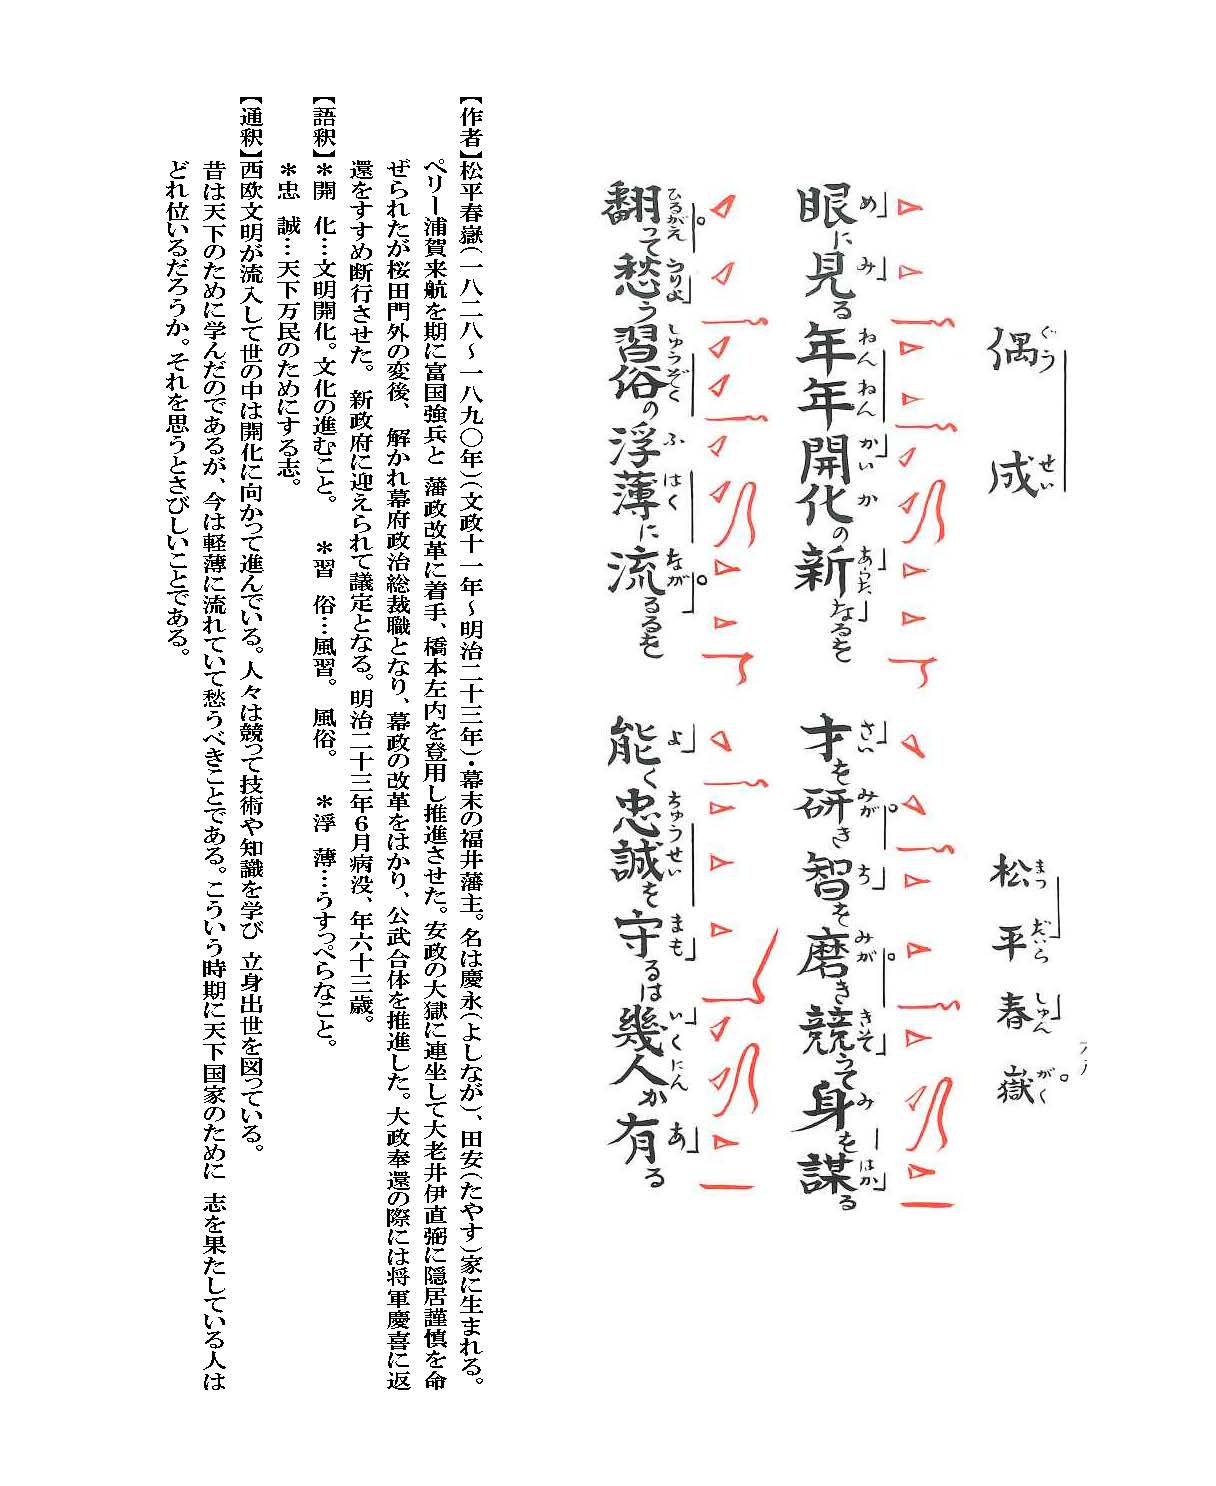 偶成
ぐうせい
松平春嶽
まつだいらしゅんがく
眼に見る年年開化の新なるを
めみねんねんかいかあらた
才を研き智を磨き競うて身を謀る
さいみがちみがきそみはか
翻って愁う習俗の浮薄に流るるを
ひるがえうりよしゅうぞくふはくなが
能く忠誠を守るは幾人か有る
よちゅうせいまもいくにんあ
【作者】松平春嶽(一八二八～一八九〇年)(文政十一年～明治二十三年)・幕末の福井藩主。名は慶永(よしなが)、田安(たやす)家に生まれる。
ペリー浦賀来航を期に富国強兵と 藩政改革に着手、橋本左内を登用し推進させた。安政の大獄に連坐して大老井伊直弼に隠居謹慎を命
ぜられたが桜田門外の変後、 解かれ幕府政治総裁職となり、幕政の改革をはかり、公武合体を推進した。大政奉還の際には将軍慶喜に返
還をすすめ断行させた。 新政府に迎えられて議定となる。明治二十三年6月病没、年六十三歳。
【語釈】＊開 化…文明開化。文化の進むこと。 ＊習 俗…風習。 風俗。 ＊浮 薄…うすっぺらなこと。
＊忠 誠…天下万民のためにする志。
【通釈】西欧文明が流入して世の中は開化に向かって進んでいる。人々は競って技術や知識を学び 立身出世を図っている。
昔は天下のために学んだのであるが、今は軽薄に流れていて愁うべきことである。こういう時期に天下国家のために 志を果たしている人は
どれ位いるだろうか。それを思うとさびしいことである。